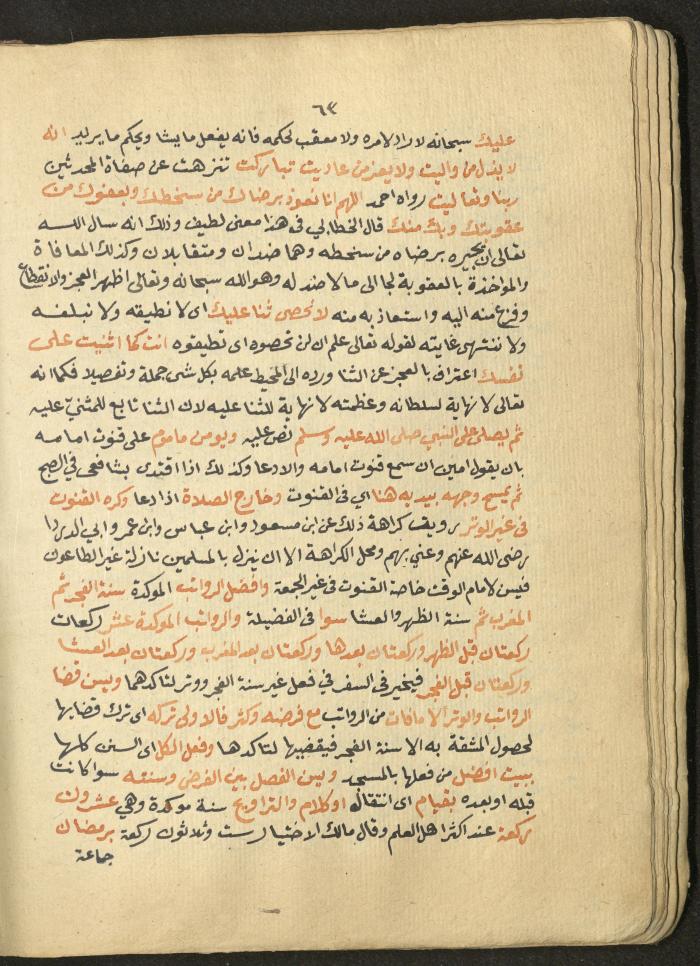 ٦٣
عليك سبحانه لا راد لامره ولا معقب لحكمه فانه يفعل ما يشا ويحكم ما يريد انه
لا يذل من واليت ولا يعز من عاديت تباركت تنزهت عن صفاة المحدثين
ربنا وتعاليت رواه احمد اللهم انا نعوذ برضاك من سخطك وبعفوك من
عقوبتك وبك منك قال الخطابي في هذا معنى لطيف وذلك انه سال الله
تعالى ان يجيره برضاه من سخطه وهما ضدان ومتقابلان وكذلك المعافاة
والمؤاخذة بالعقوبة لجا الى ما لا ضد له وهو الله سبحانه وتعالى اظهر العجز والانقطاع
وفزع منه اليه واستعاذ به منه لا نحصى ثنا عليك اى لا نطيقه ولا نبلغه
ولا ننتهى غايته لقوله تعالى علم ان لن تحصوه اى تطيقوه انت كما اثنيت على
نفسك اعتراف بالعجز عن الثنا ورده الى المحيط علمه بكل شى جملة وتفصيلا فكما انه
تعالى لا نهاية لسلطانه وعظمته لا نهاية للثنا عليه لان الثنا تابع للمثني عليه
ثم يصلى على النبي صلى الله عليه وسلم نص عليه ويومن ماموم على قنوت امامه
بان يقول امين ان سمع قنوت امامه والا دعا وكذلك اذا اقتدى بشافعى في الصبح
ثم يمسح وجهه بيديه هنا اي في القنوت وخارج الصلاة اذا دعا وكره القنوت
في غير الوتر رويت كراهة ذلك عن ابن مسعود وابن عباس وابن عمر وابي الدردا
رضى الله عنهم وعني بهم ومحل الكراهة الا ان ينزل بالمسلمين نازلة غير الطاعون
فيسن لامام الوقت خاصة القنوت في غير الجمعة وافضل الرواتب الموكدة سنة الفجر ثم
المغرب ثم سنة الظهر والعشا سوا في الفضيلة والرواتب الموكدة عشر ركعات
ركعتان قبل الظهر وركعتان بعدها وركعتان بعد المغرب وركعتان بعد العشا
وركعتان قبل الفجر فيخير في السفر في فعل غير سنة الفجر ووتر لتاكدهما ويسن قضا
الرواتب والوتر الا ما فات من الرواتب مع فرضه وكثر فالاولى تركه اى ترك قضايها
لحصول المشقة به الا سنة الفجر فيقضيها لتاكدها وفعل الكل اى السنن كلها
ببيت افضل من فعلها بالمسجد ويسن الفصل بين الفرض وسنته سوا كانت
قبله او بعده بقيام اى انتقال او كلام والتراويح سنة موكدة وهي عشرون
ركعة عند اكثر اهل العلم وقال مالك الاختيار ست وثلاثون ركعة برمضان
جماعة